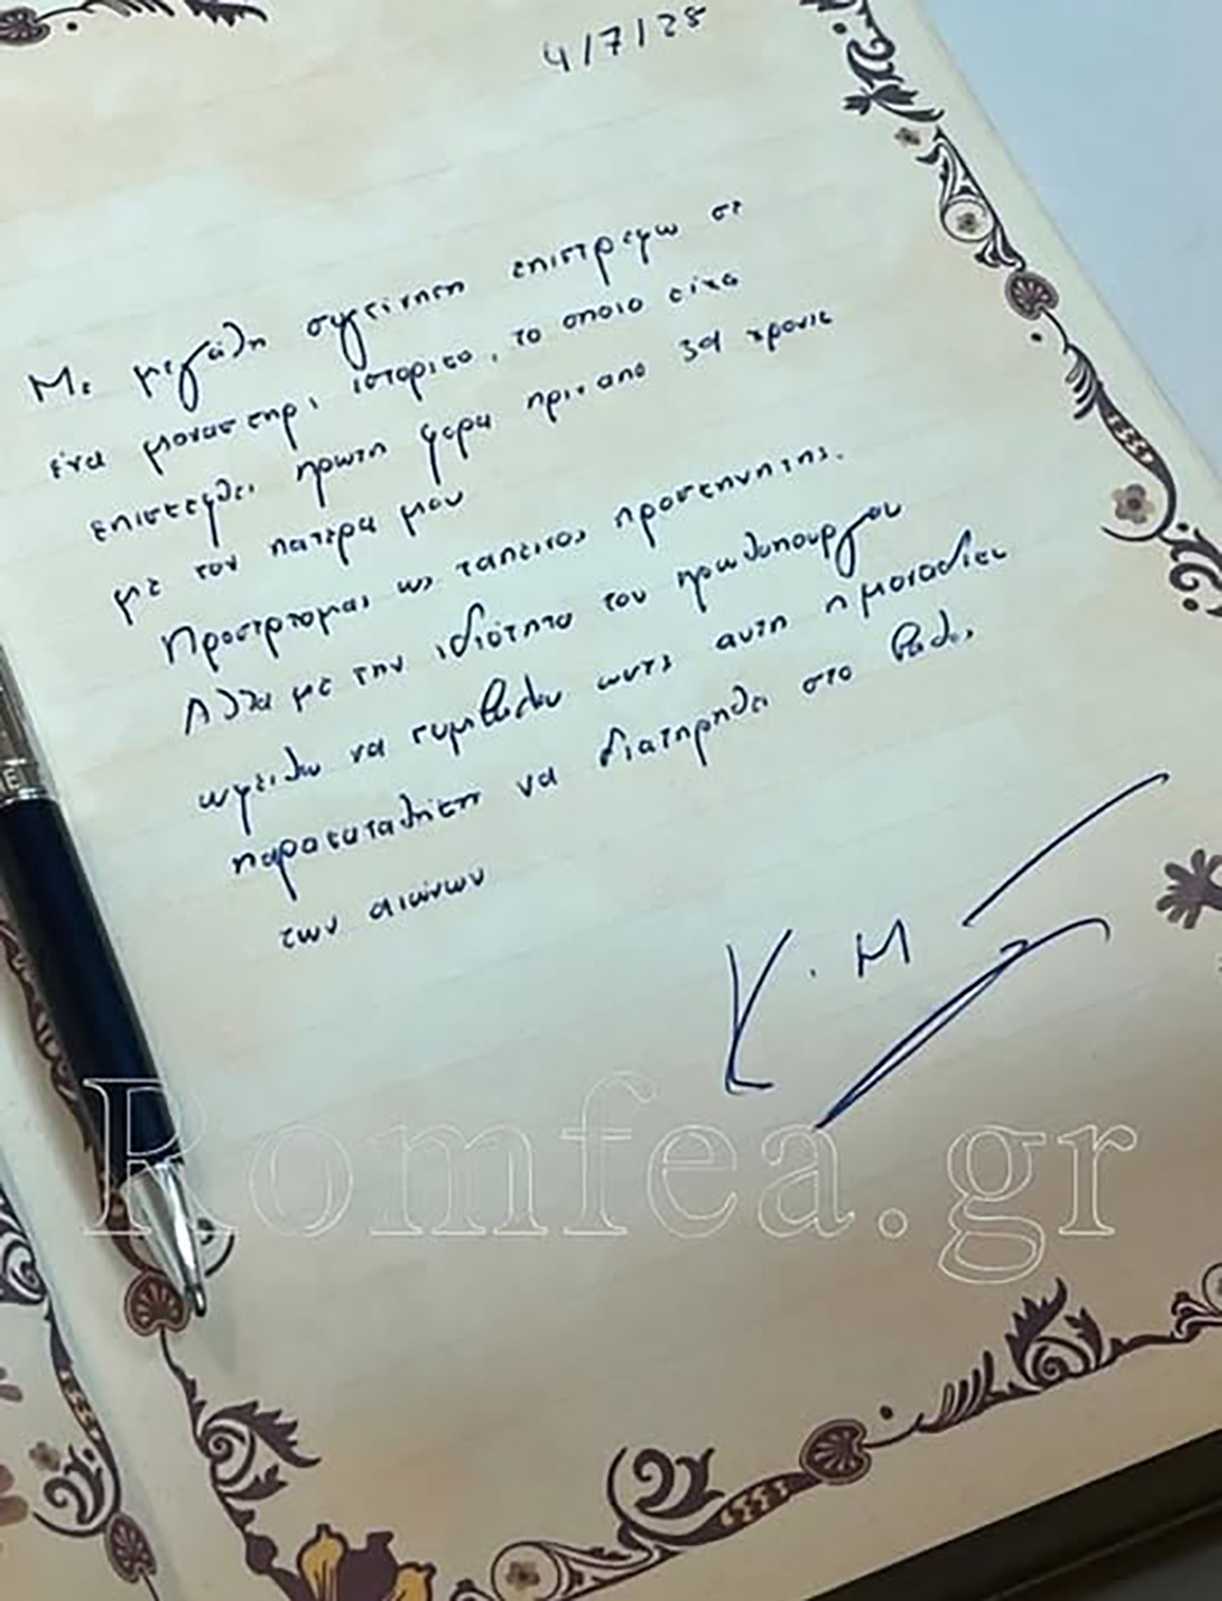 4/7/25
Με μεγάλη συγκίνηση επιστρέφω σε
ένα μοναστήρι ιστορικό, το οποίο είχα
επισκεφθεί πρώτη φορά πριν από 39 χρόνια
με τον πατέρα μου
Προσέρχομαι ως ταπεινός προσκυνητής.
Αλλά με την ιδιότητα του πρωθυπουργού
ωφείλω να συμβάλω ώστε αυτή η μοναδική
παρακαταθήκη να διατηρηθεί στο βάθος
των αιώνων
Κ. Μ
Romfea.gr